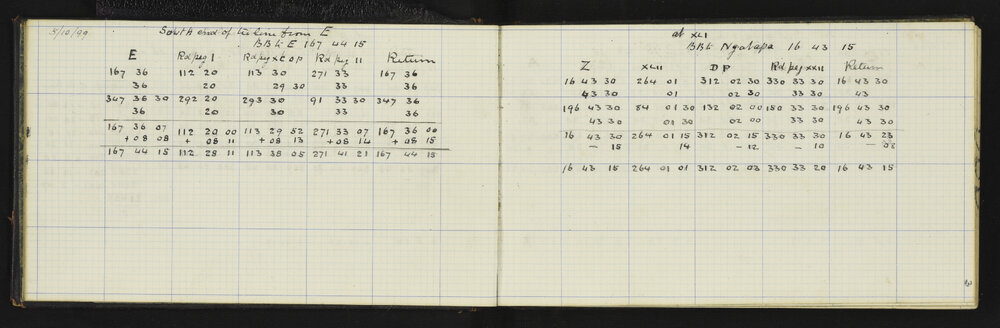 5/10/99
South end of tie line from E
BBk E 167 44 15
E Rd peg I Rd peg XL OP Rd peg II Return
167 36 112 20 113 30 271 33 167 36
36 20 29 30 33 36
347 36 30 292 20 293 30 91 33 30 347 36
36 20 30 33 36
167 36 07 112 20 00 113 29 52 271 33 07 167 36 00
+ 08 08 + 08 11 + 08 13 + 08 14 + 08 15
167 44 15 112 28 11 113 38 05 271 41 21 167 44 15
at XLI
BBk Ngatapa 16 43 15
Z XLII DP Rd peg XXII Return
16 43 30 264 01 312 02 30 330 33 30 16 43 30
43 30 01 02 30 33 30 43
196 43 30 84 01 30 132 02 00 150 33 30 196 43 30
43 30 01 30 02 00 33 30 43 30
16 43 30 264 01 15 312 02 15 330 33 30 16 43 23
– 15 14 – 12 – 10 – 08
16 43 15 264 01 01 312 02 03 330 33 20 16 43 15